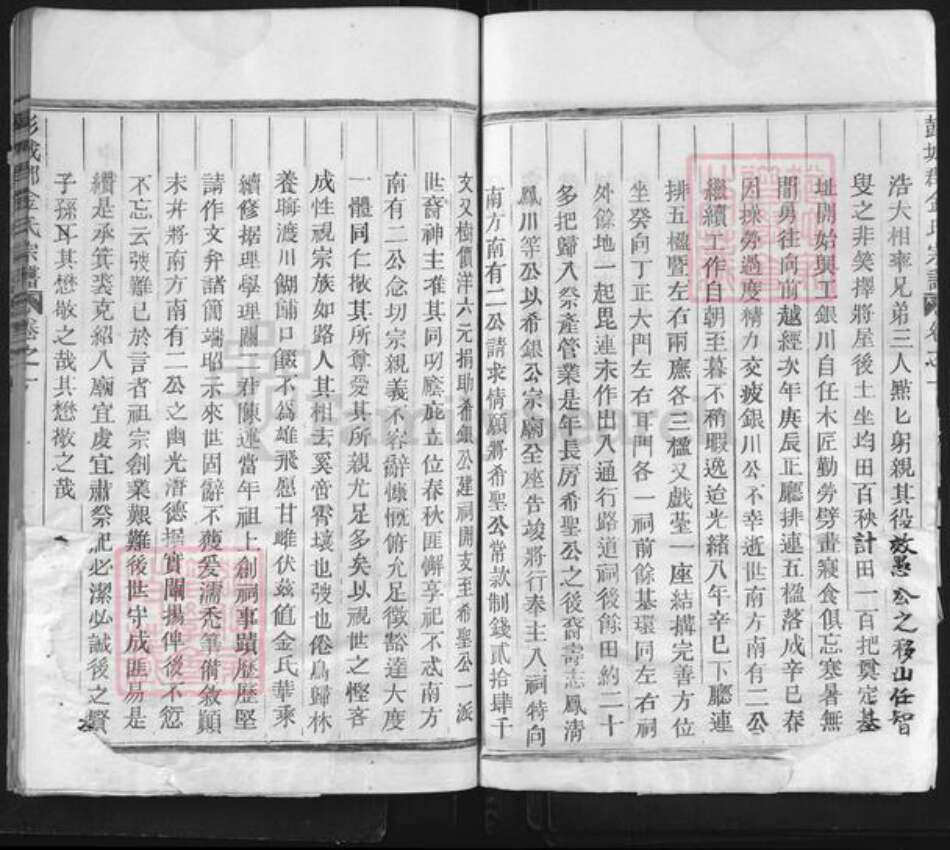 彭城郡金氏宗譜 卷之一
浩大相率兄弟三人點匕躬親其役效愚公之移山任智
叟之非笑擇將屋後土坐均田百秧計田一百把奠定基
址開始興工銀川自任木匠勤勞劈畫寢食俱忘寒暑無
間勇往向前越經次年庚辰正廳排連五楹落成辛巳春
因操勞過度精力交疲銀川公不幸逝世南方南有二公
繼續工作自朝至暮不稍暇逸迨光緒八年辛巳下廳連
排五楹暨左右兩廡各三楹又戲臺一座結搆完善方位
坐癸向丁正大門左右耳門各一祠前餘基環同左右祠
外餘地一起毘連未作出入通行路道祠後餘田約二十
多把歸入祭產管業是年長房希聖公之後裔壽志鳳淸
鳳川等公以希銀公宗廟全座告竣將行奉主入祠特向
南方南有二公請求情願將希聖公常款制錢貳拾肆千
文又樹價洋六元捐助希銀公建祠開支至希聖公一派
世裔神主准其同叨廕庇立位春秋匪懈享祀不忒南方
南有二公念切宗親義不容辭慷慨俯允足徵豁達大度
一體同仁敬其所尊愛其所親尤足多矣以視世之慳吝
成性視宗族如路人其相去奚啻霄壤也弢也倦鳥歸林
養晦渡川餬餔口飯不爲雄飛愿甘雌伏茲值金氏華乘
續修据理學理關二君陳述當年祖上創祠事蹟歷歷堅
請作文弁諸簡端昭示來世固辭不獲爰濡禿筆備敘顚
末幷將南方南有二公之幽光潛德據實闡揚俾後不愆
不忘云弢難已於言者祖宗創業艱難後世守成匪易是
纘是承箕裘克紹入廟宜虔宜肅祭祀必潔必誠後之賢
子孫耳其懋敬之哉其懋敬之哉
彭城郡金氏宗譜 卷之一